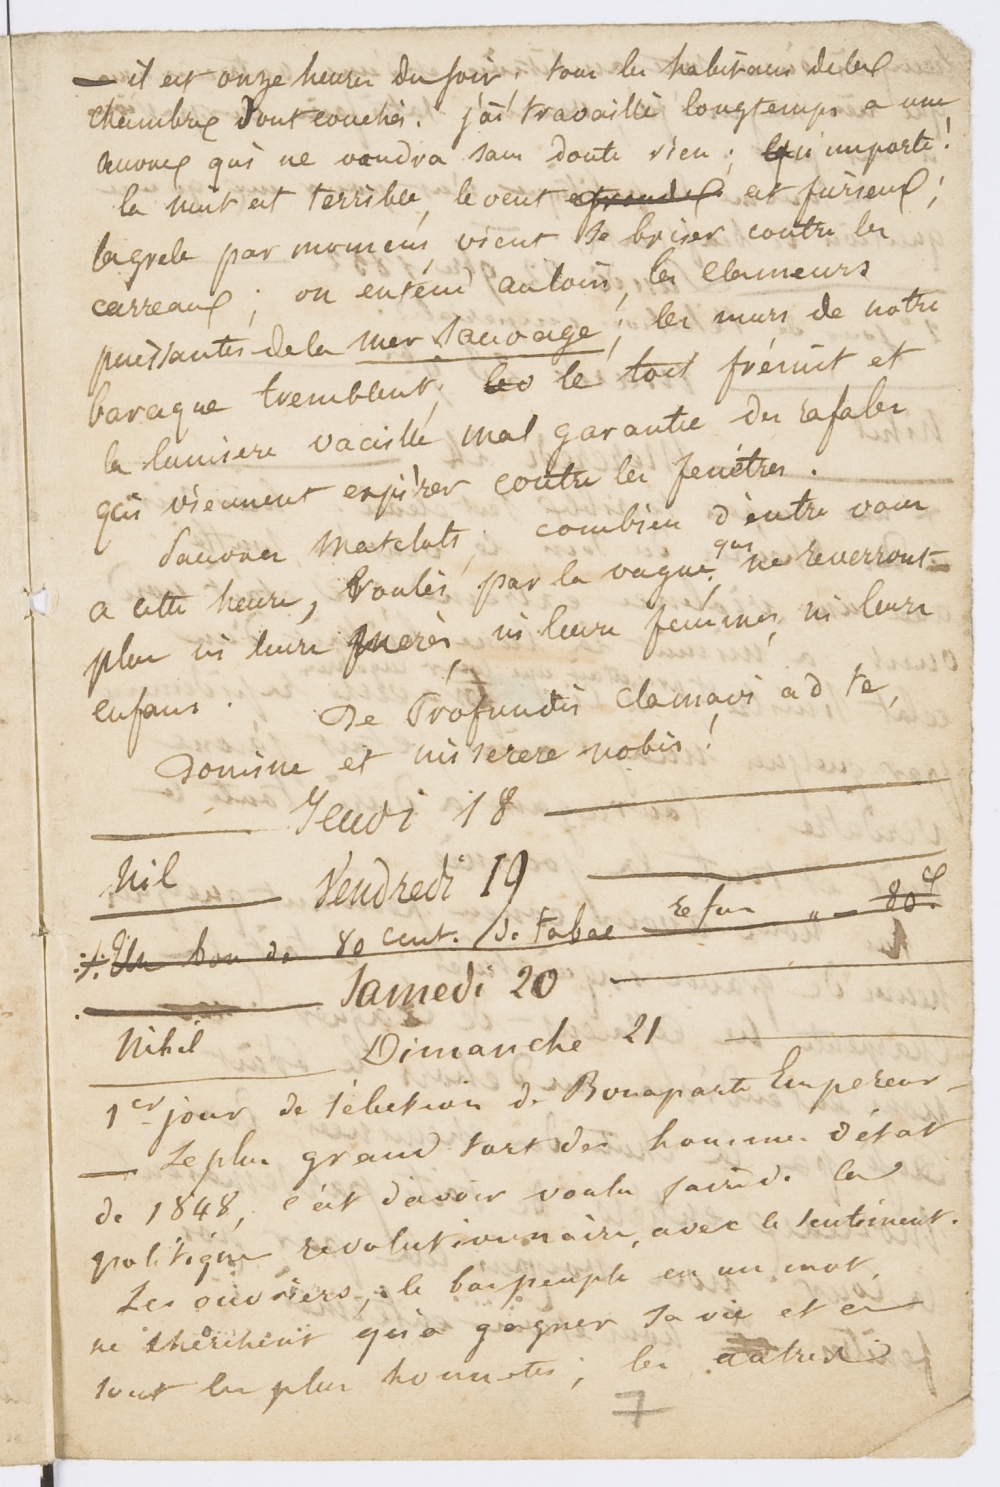 — il est onze heures du soir, tous les habitans de la
chambre sont couchés. j'ai travaillé longtemps a une
œuvre qui ne vaudra sans doute rien ; qu'importe !
la nuit est terrible, le vent est furieux ;
la grele par momens, vient se briser contre les
carreaux ; on entend au loin, les clameurs
puissantes de la mer sauvage ; les murs de notre
baraque tremblent, les le toit frémit et
la lumiere vacille mal garantie des rafales
qui viennent expirer contre les fenétres.
Pauvres matelots, combien d'entre vous
a cette heure, roulés par la vague, qui ne reverront
plus ni leurs meres, ni leurs femmes, ni leurs
enfans. De Profundis clamavi ad te,
Domine et miserere nobis !
Jeudi 18
Nil Vendredi 19
Un bon de 80 cent. de tabac refus " — 80 c.
Samedi 20
Nihil Dimanche 21
1er jour de l'élection de Bonaparte Empereur —
— Le plus grand tort des hommes d'état
de 1848, c'est d'avoir voulu faire de la
politique revolutionnaire, avec le sentiment.
Les ouvriers, le bas peuple en un mot,
ne cherchent qu'a gagner sa vie et ce
sont les plus honnetes ; les autres
7